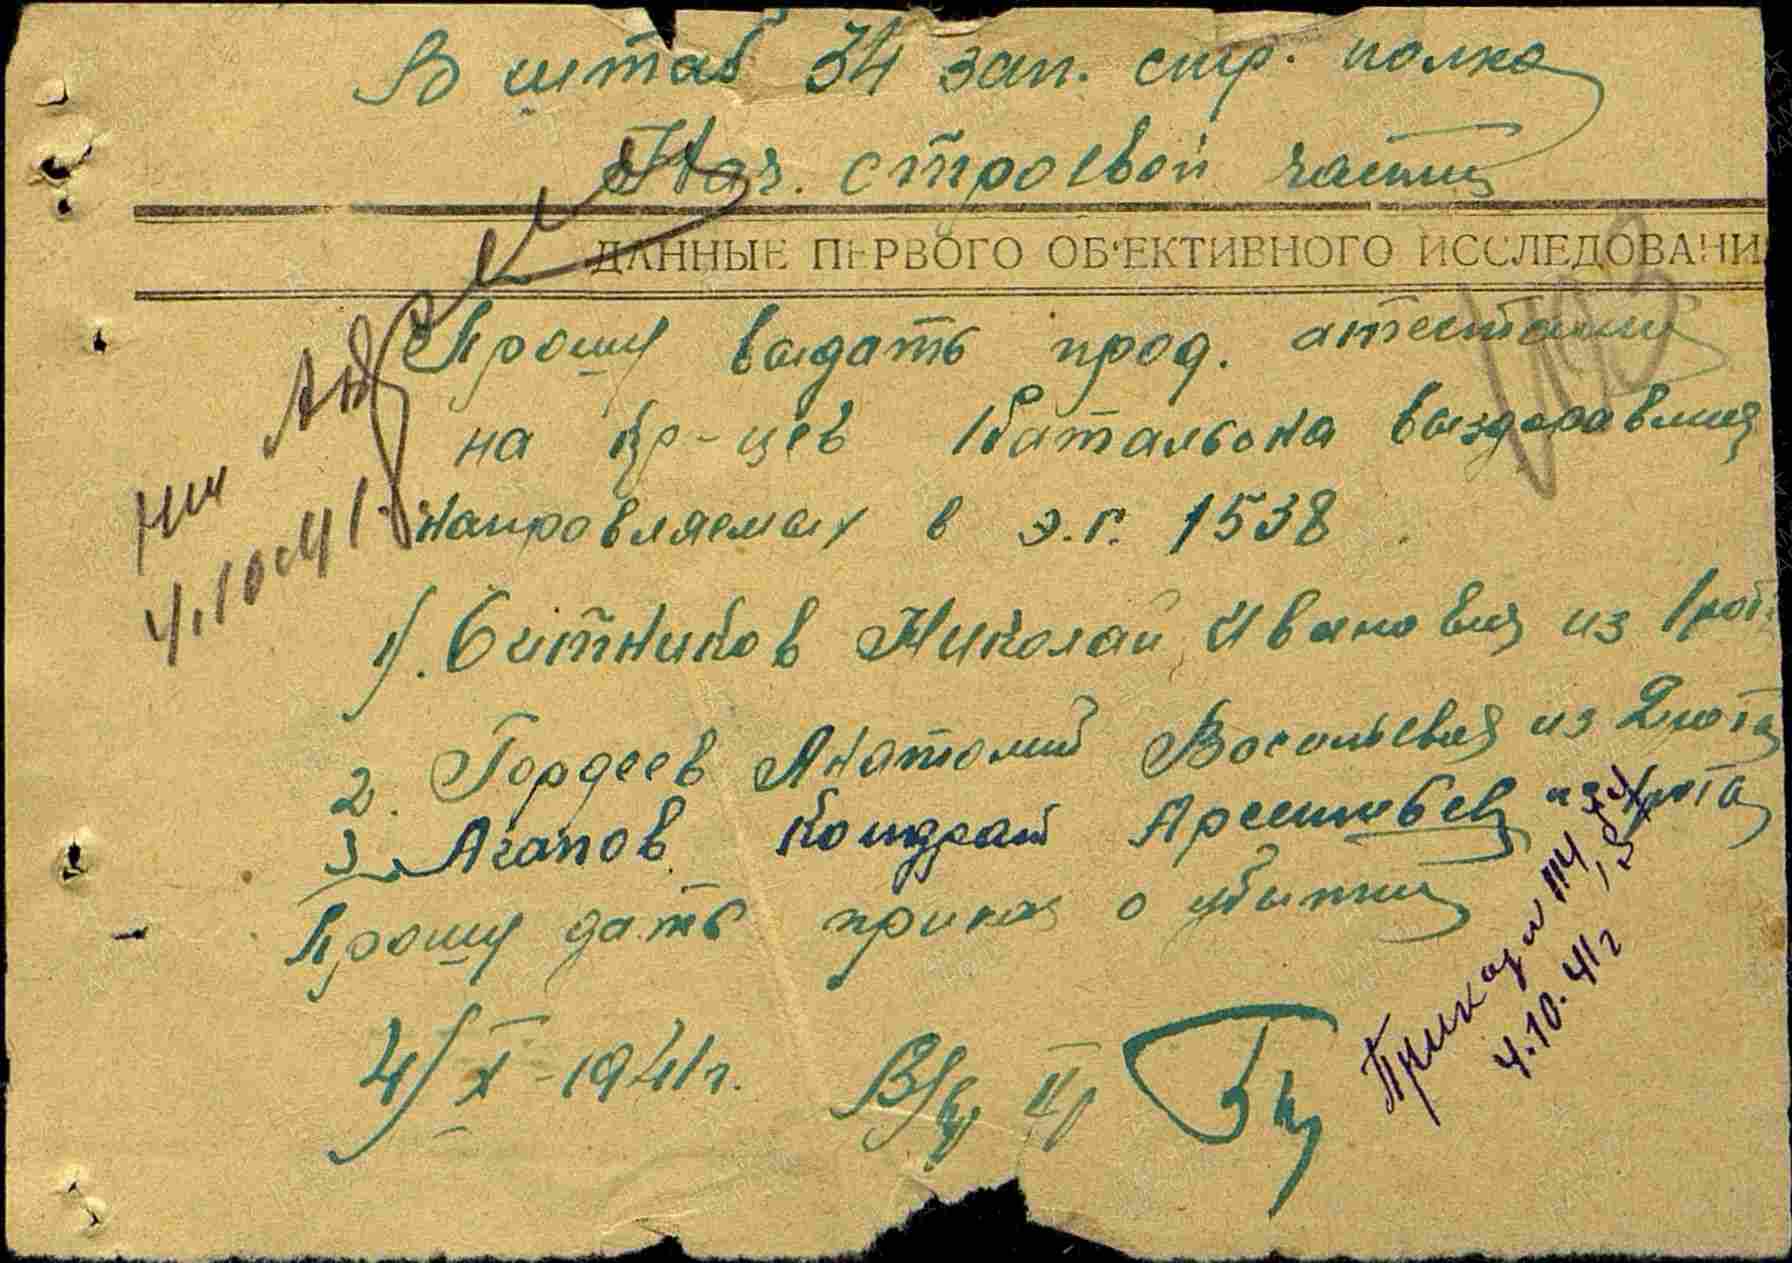 В штаб 34 зап. стр. полка
Нач. строевой части
ДАННЫЕ ПЕРВОГО ОБ'ЕКТИВНОГО ИССЛЕДОВАНИ
Прошу выдать прод. аттестаты
на кр-цев батальона выздоравлив
направляемых в э.г. 1538
4.10.41.
1). Ситников Николай Иванович из 1 рот
2. Гордеев Анатолий Васильевич из 2 рота
3. Агапов Кондрат Арсентьев из рота
Прошу дать приказ о убытии
4/X-1941г.
Приказом 114
4.10.41г